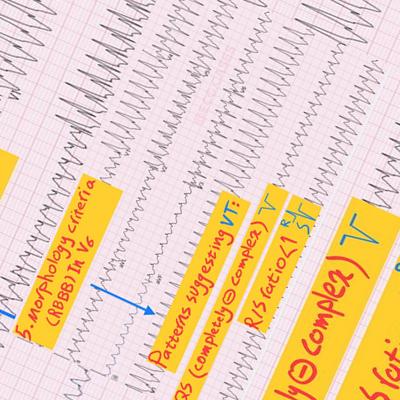 5. morphology criteria
(RBBB) In V6
Patterns suggesting VT:
QS (completely ⊖ complex)
R/S ratio <1 R/S
ly ⊖ complex)
S rati